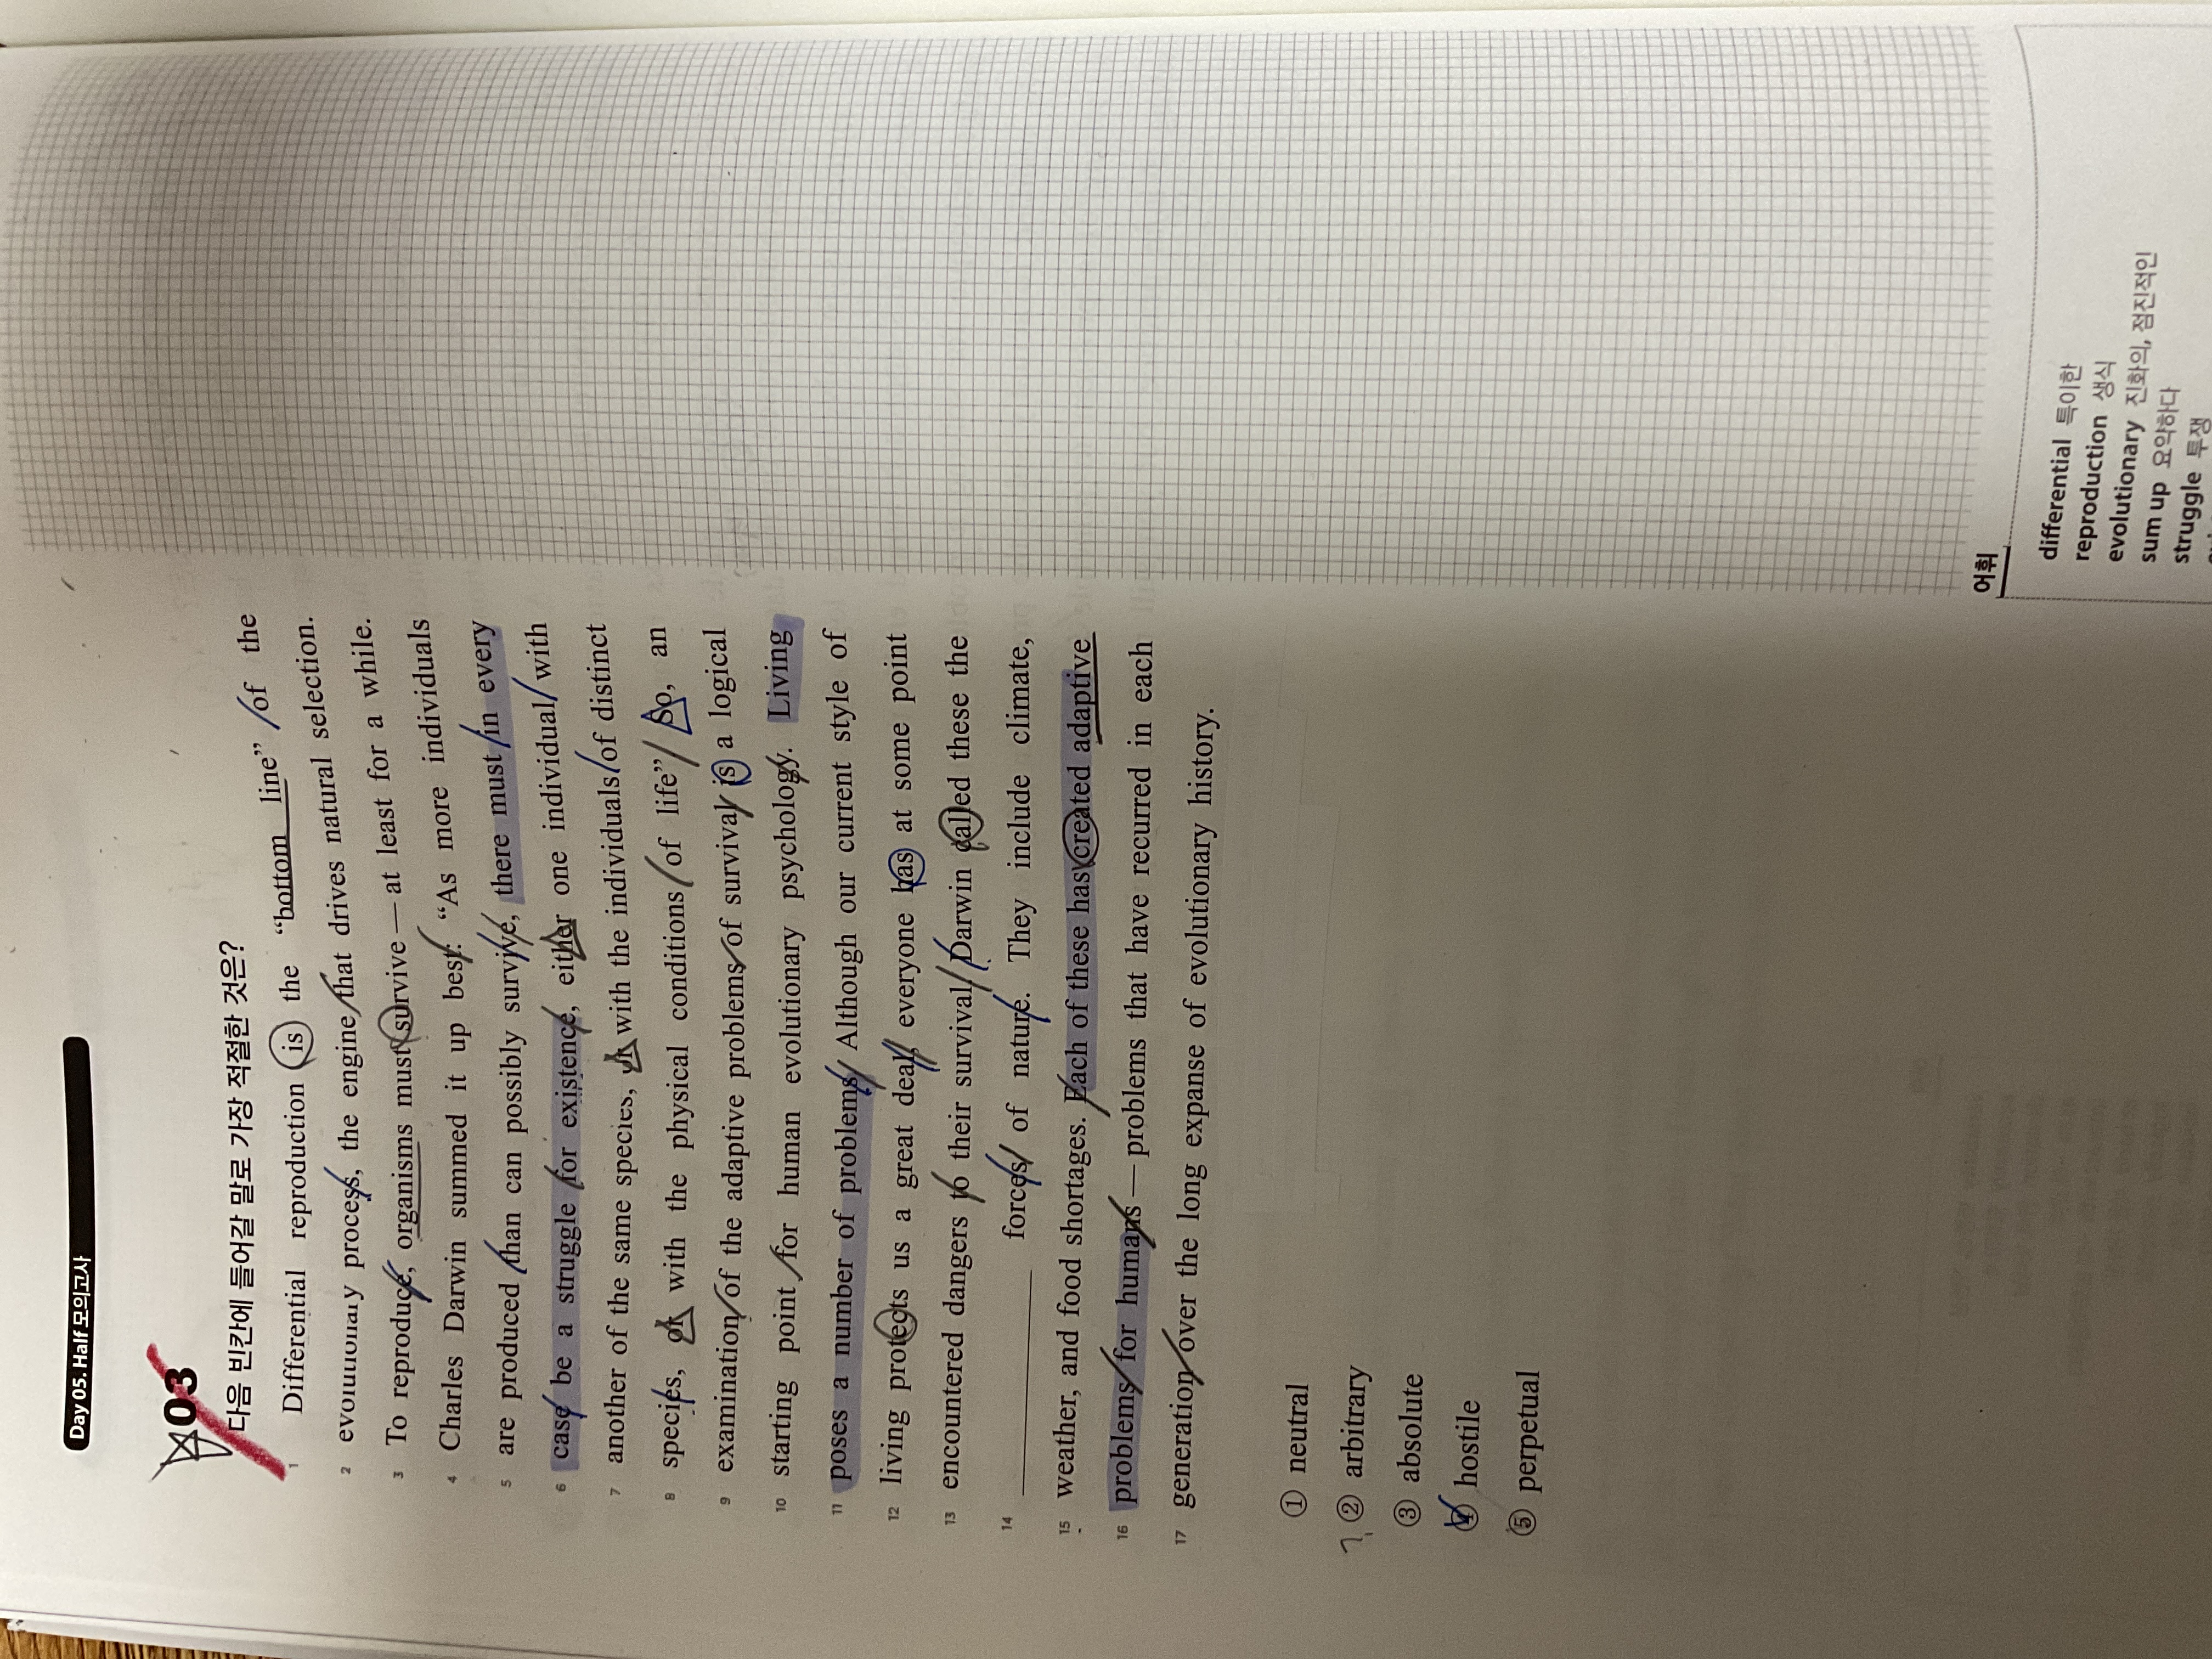 Day 05. Half 모의고사
03
다음 빈칸에 들어갈 말로 가장 적절한 것은?
1 Differential reproduction is the “bottom line” of the
2 evolutionary process, the engine that drives natural selection.
3 To reproduce, organisms must survive — at least for a while.
4 Charles Darwin summed it up best: “As more individuals
5 are produced than can possibly survive, there must in every
6 case be a struggle for existence, either one individual with
7 another of the same species, or with the individuals of distinct
8 species, or with the physical conditions of life” So, an
9 examination of the adaptive problems of survival is a logical
10 starting point for human evolutionary psychology. Living
11 poses a number of problems. Although our current style of
12 living protects us a great deal, everyone has at some point
13 encountered dangers to their survival. Darwin called these the
14 ________ forces of nature. They include climate,
15 weather, and food shortages. Each of these has created adaptive
16 problems for humans — problems that have recurred in each
17 generation over the long expanse of evolutionary history.
① neutral
② arbitrary
③ absolute
④ hostile
⑤ perpetual
어휘
differential 특이한
reproduction 생식
evolutionary 진화의, 점진적인
sum up 요약하다
struggle 투쟁